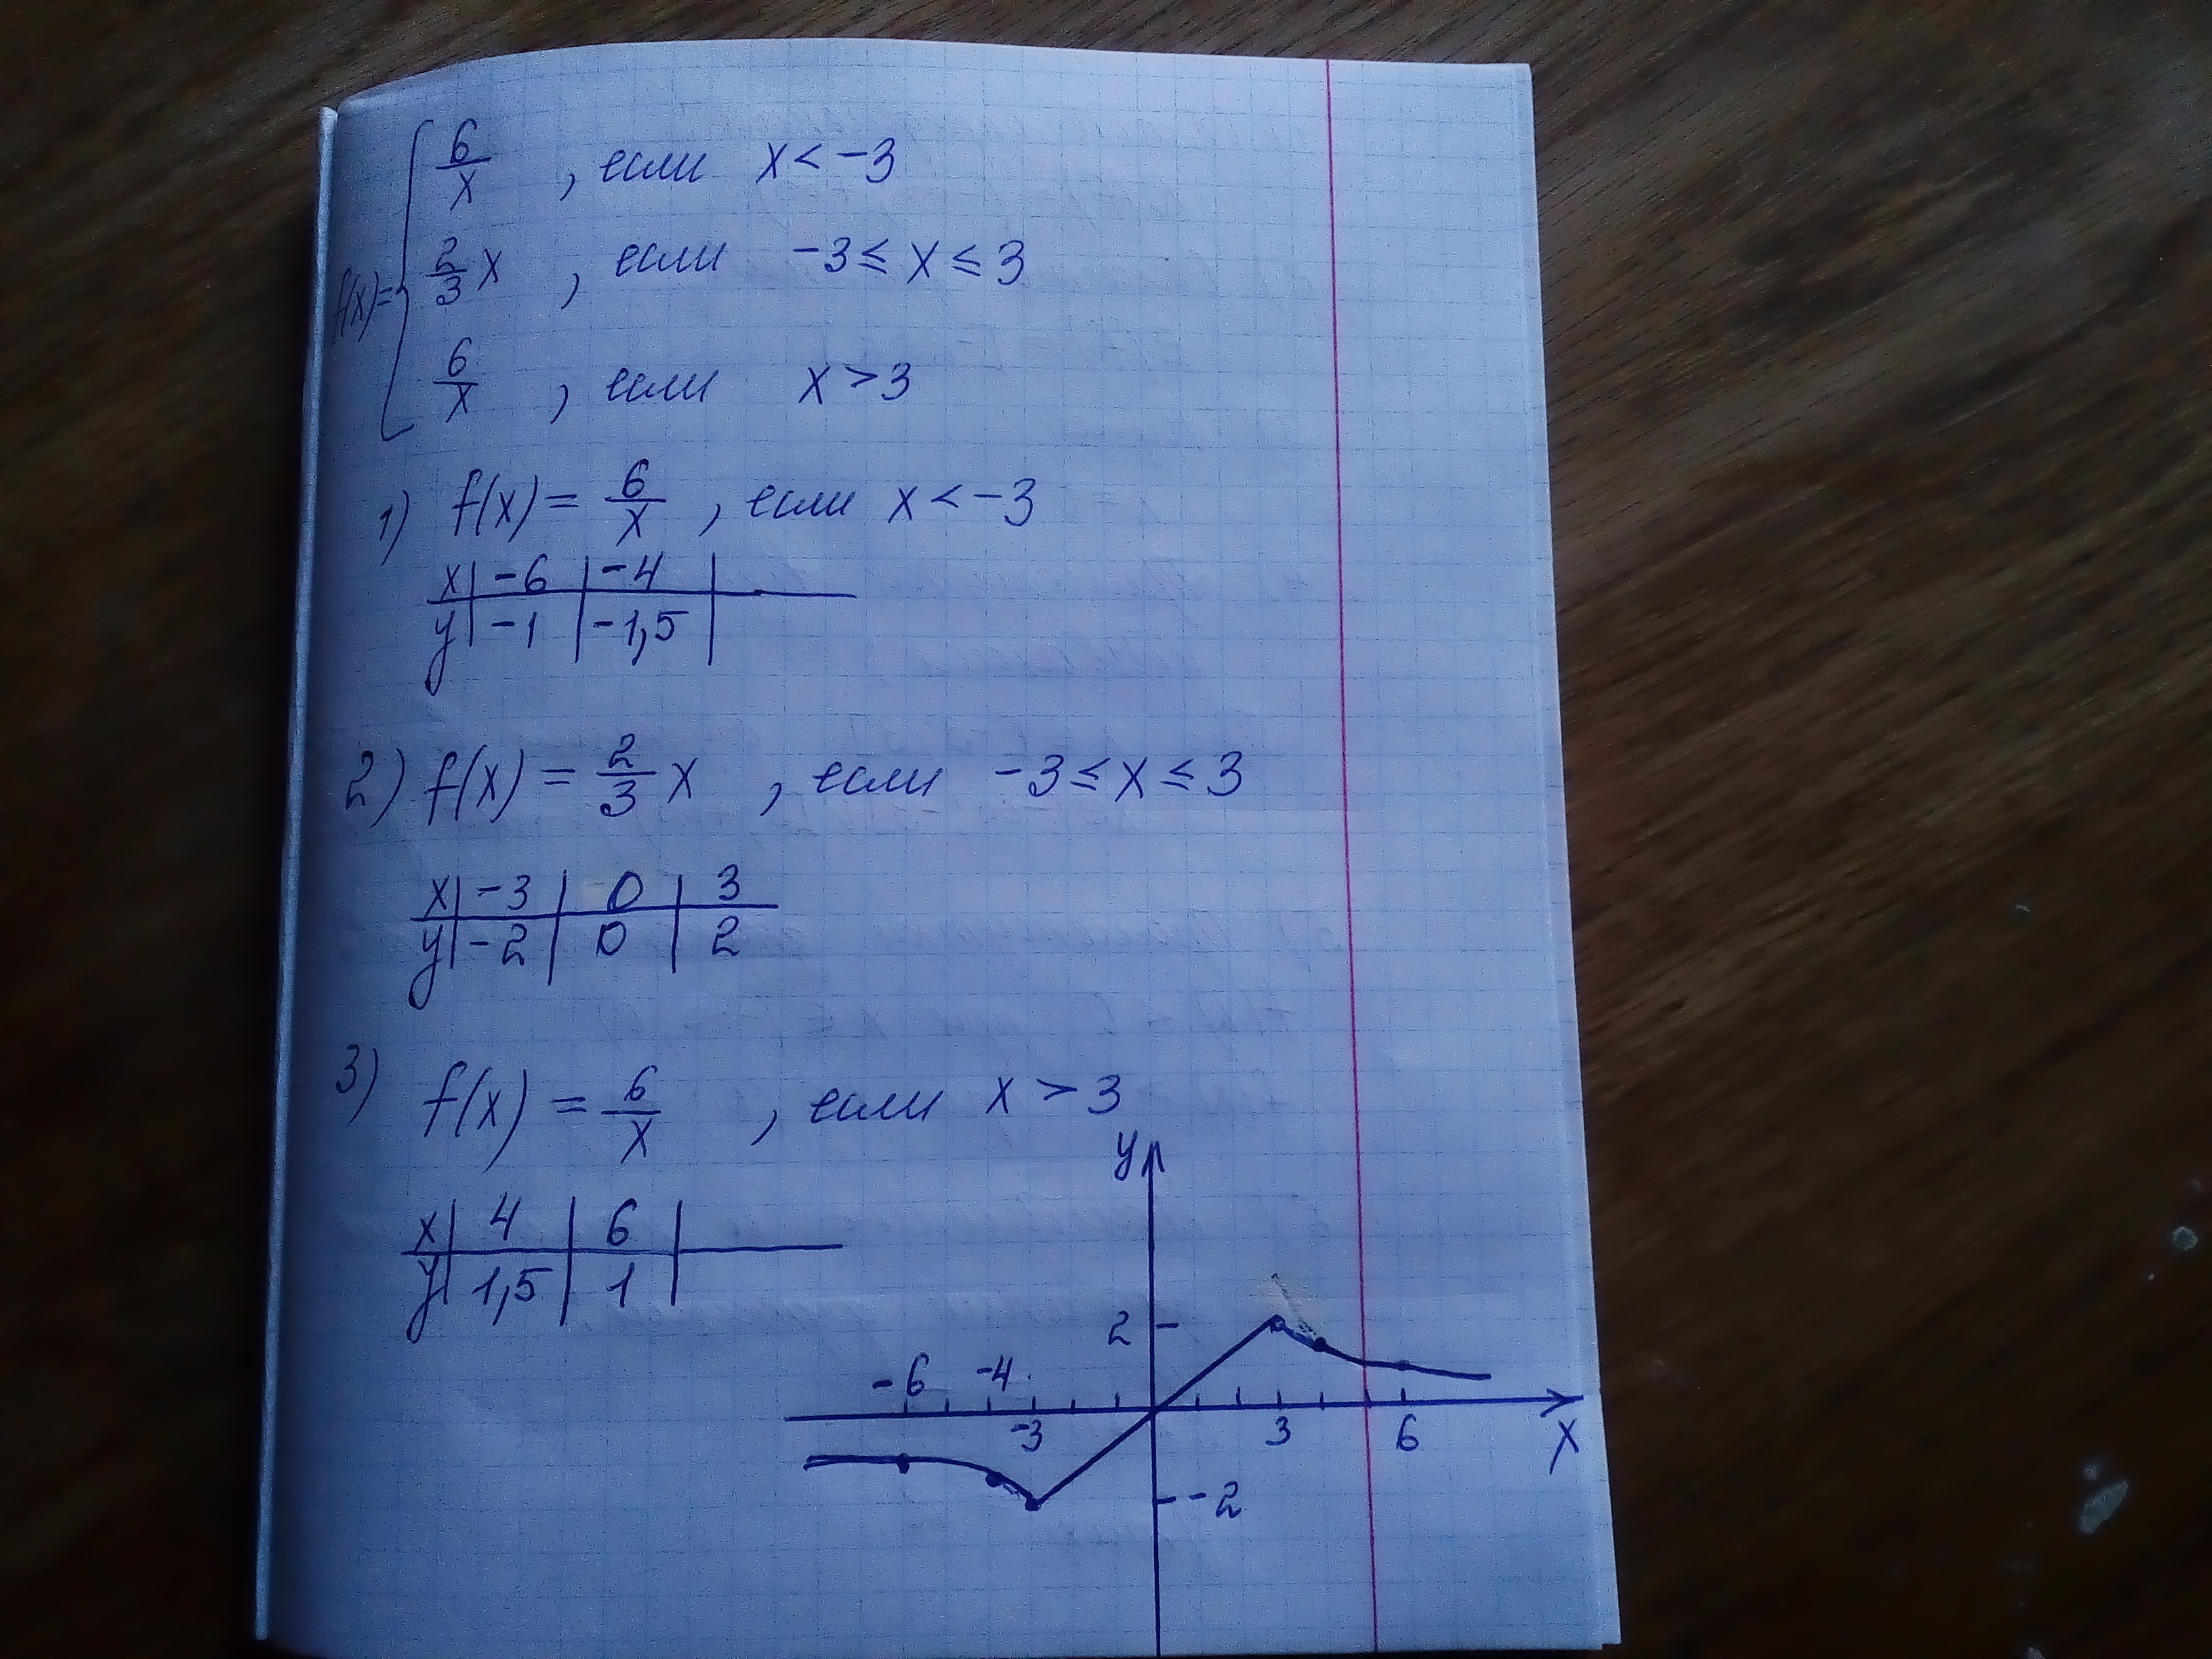 f(x) = { 6/x , если x < -3
2/3 x , если -3 ≤ x ≤ 3
6/x , если x > 3
1) f(x) = 6/x , если x < -3
x | -6 | -4 |
y | -1 | -1,5 |
2) f(x) = 2/3 x , если -3 ≤ x ≤ 3
x | -3 | 0 | 3
y | -2 | 0 | 2
3) f(x) = 6/x , если x > 3
x | 4 | 6 |
y | 1,5 | 1 |
y
2
-6 -4
-3 3 6 x
-2